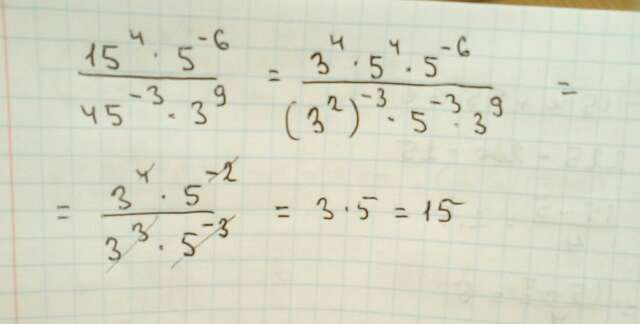 15⁴ · 5⁻⁶ / 45⁻³ · 3⁹ = 3⁴ · 5⁴ · 5⁻⁶ / (3²)⁻³ · 5⁻³ · 3⁹ =
= 3⁴ · 5⁻² / 3³ · 5⁻³ = 3 · 5 = 15